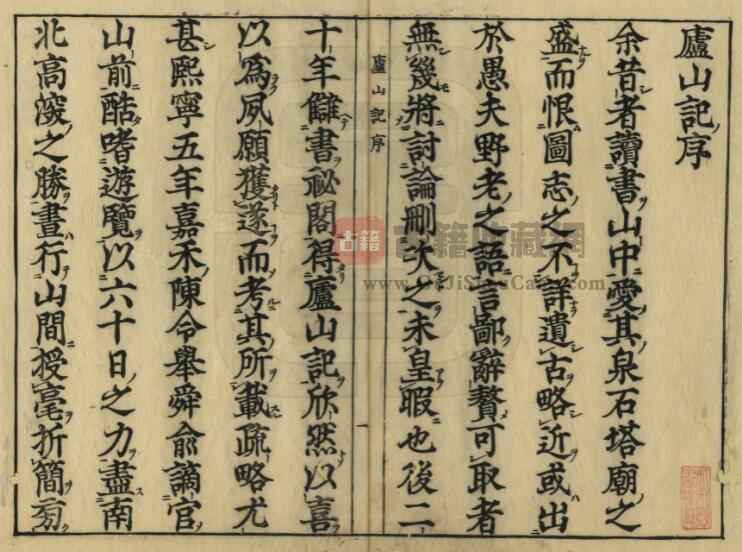 廬山記序
余昔者讀書山中愛其泉石塔廟之
盛而恨圖志之不詳遺古略近或出
於愚夫野老之語言鄙辭贅可取者
無幾將討論刪次之未皇暇也後二
廬山記序
一
十年讎書祕閣得廬山記欣然以喜
以爲夙願獲遂而考其所載疏略尤
甚熙寧五年嘉禾陳令舉舜俞謫官
山前酷嗜遊覽以六十日之力盡南
北高深之勝晝行山間援毫折簡旁
古籍